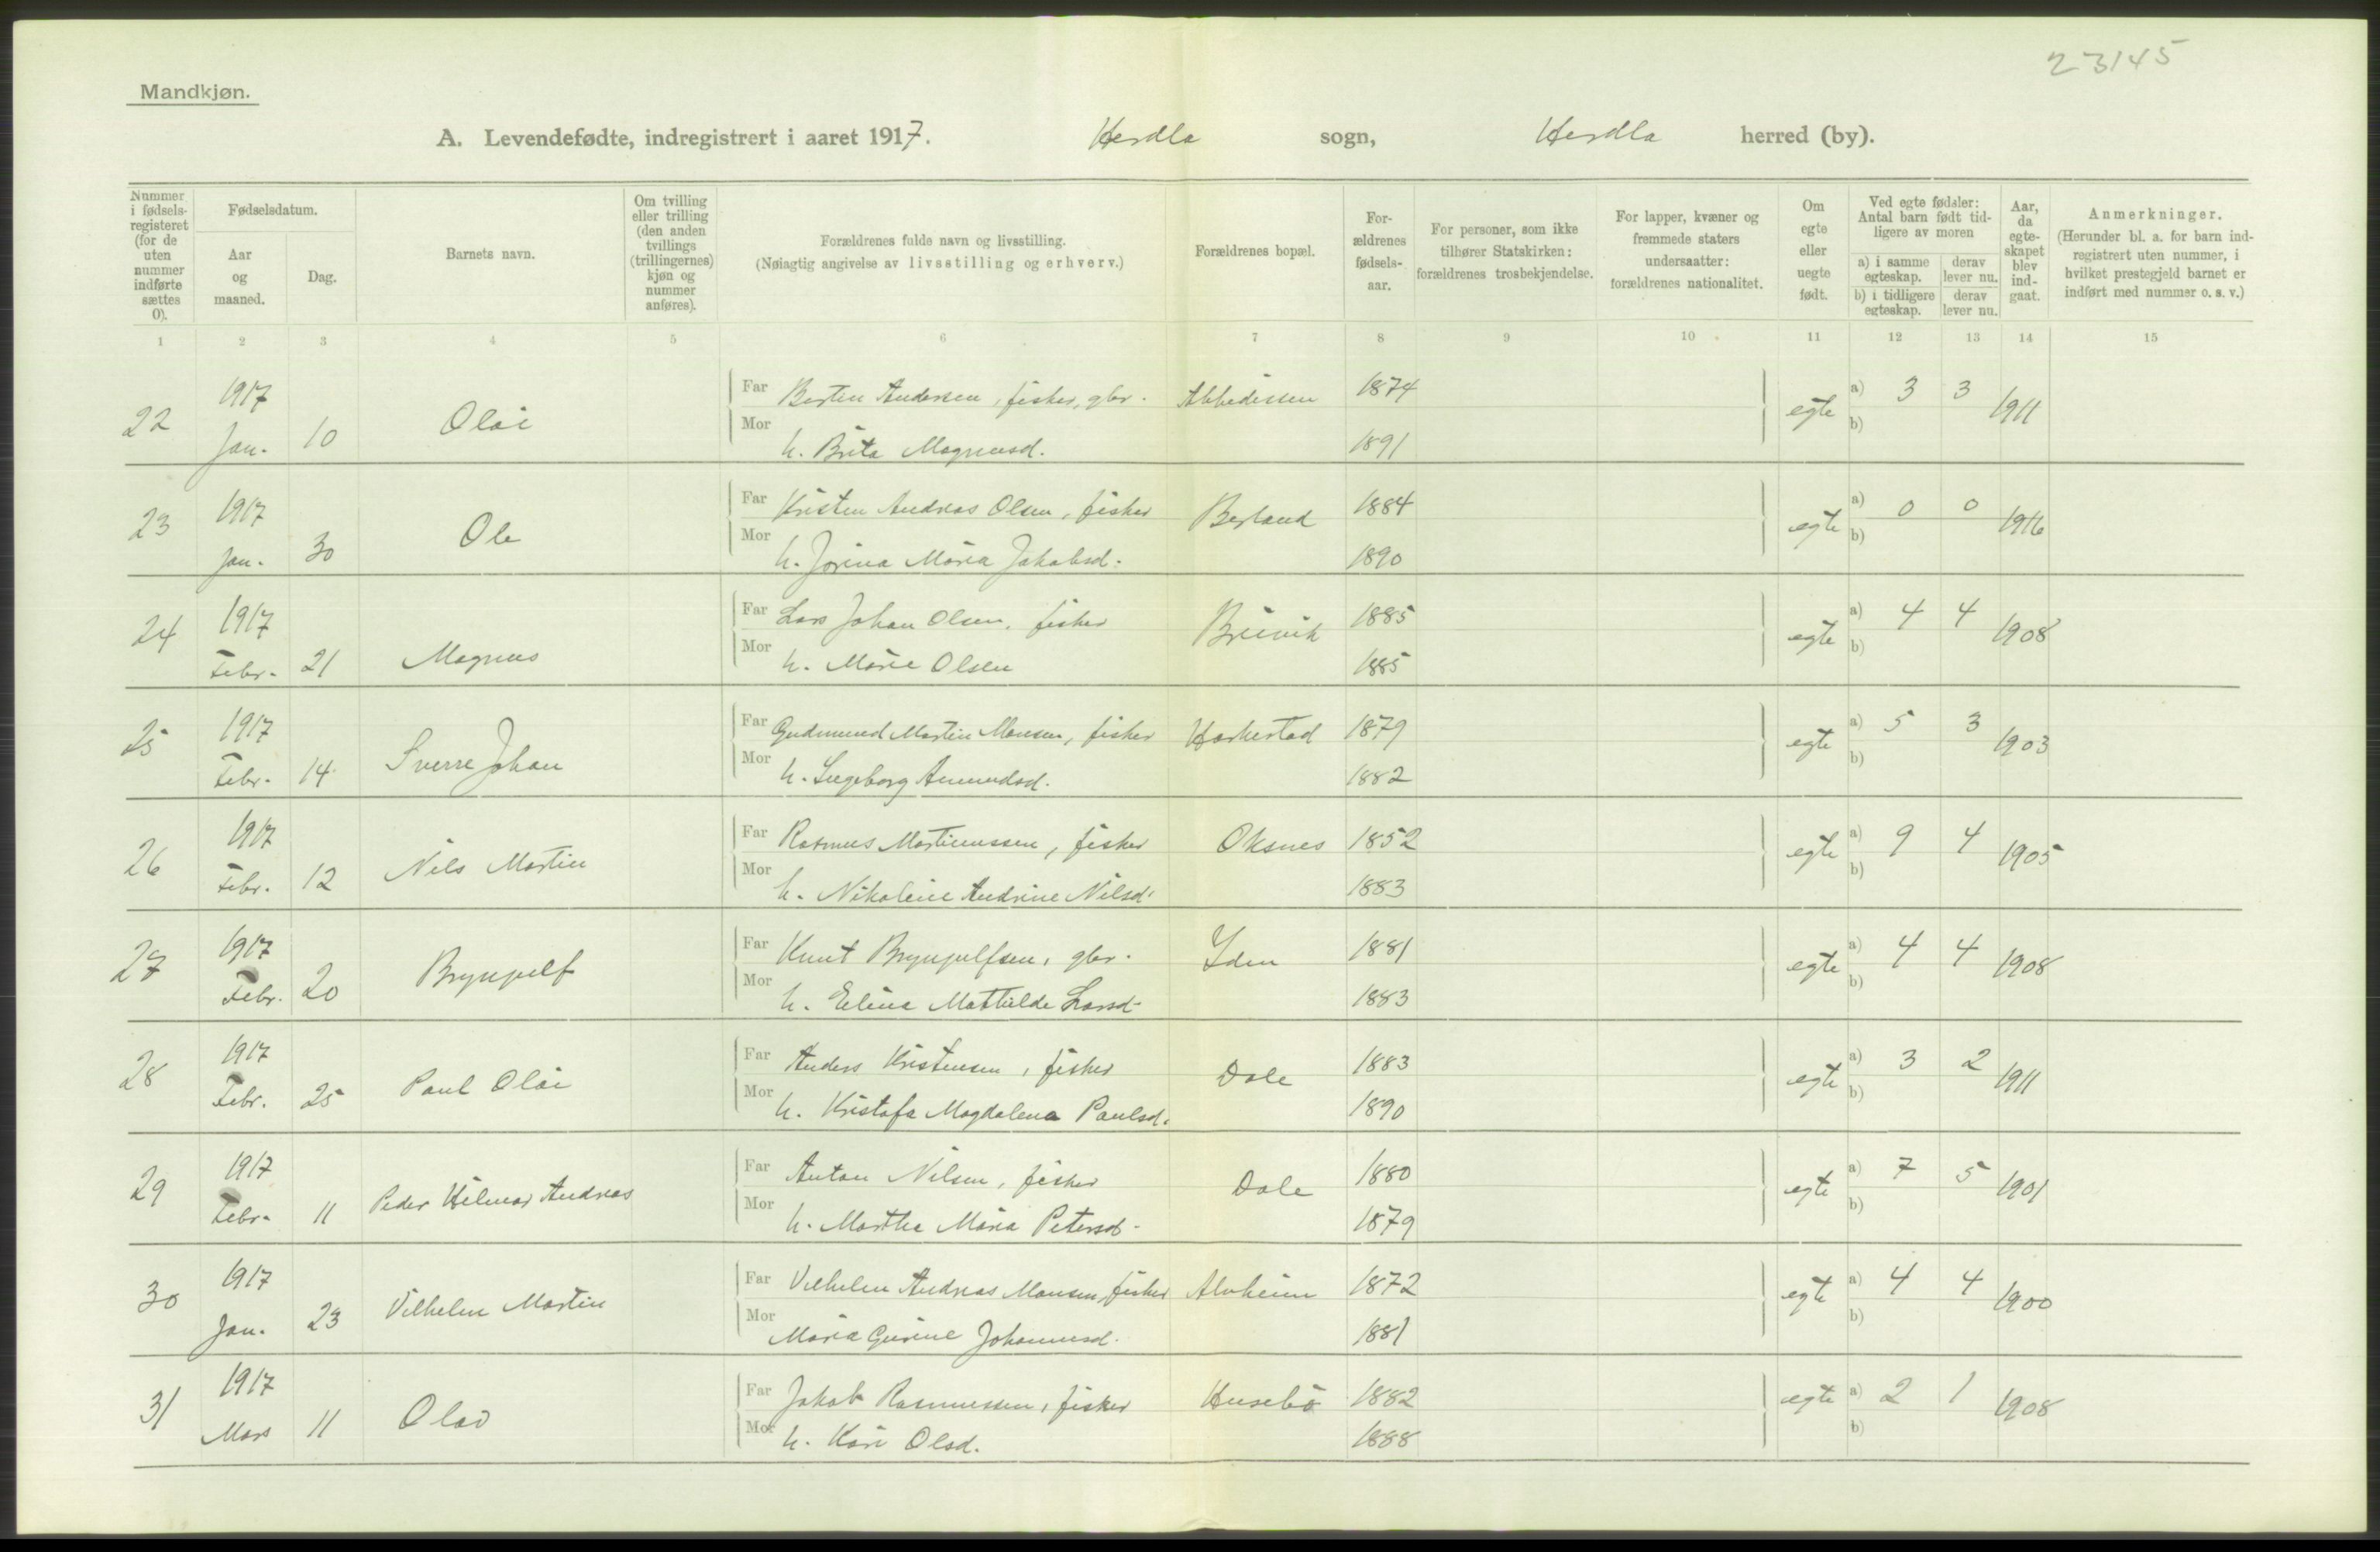 23145
Mandkjøn.
A. Levendefødte, indregistrert i aaret 1917. Herdla sogn, Herdla herred (by).
Nummer i fødsels-registeret (for de uten nummer indførte sættes 0).
Fødselsdatum.
Aar og maaned.
Dag.
Barnets navn.
Om tvilling eller trilling (den anden tvillings (trillingernes) kjøn og nummer anføres).
Forældrenes fulde navn og livsstilling.
(Nøiagtig angivelse av livsstilling og erhverv.)
Forældrenes bopæl.
For-ældrenes fødsels-aar.
For personer, som ikke tilhører Statskirken: forældrenes trosbekjendelse.
For lapper, kvæner og fremmede staters undersaatter: forældrenes nationalitet.
Om egte eller uegte født.
Ved egte fødsler: Antal barn født tid-ligere av moren
a) i samme egteskap.
derav lever nu.
b) i tidligere egteskap.
derav lever nu.
Aar, da egte-skapet blev ind-gaat.
Anmerkninger.
(Herunder bl. a. for barn ind-registrert uten nummer, i hvilket prestegjeld barnet er indført med nummer o. s. v.)
1 2 3 4 5 6 7 8 9 10 11 12 13 14 15
22 1917 Jan. 10 Olai Far Bertin Andersen, fisker, gbr. 1874 egte a) 3 3 1911
Mor h. Brita Magnusd. 1891 b)
23 1917 Jan. 30 Ole Far Kristen Andreas Olsen, fisker Berland 1884 egte a) 0 0 1916
Mor h. Jorina Maria Jakobsd. 1890 b)
24 1917 Febr. 21 Magnus Far Lars Johan Olsen, fisker Breivik 1885 egte a) 4 4 1908
Mor h. Marie Olsen 1885 b)
25 1917 Febr. 14 Sverre Johan Far Gudmund Martin Monsen, fisker Harkestad 1879 egte a) 5 3 1903
Mor h. Ingeborg Amundsd. 1882 b)
26 1917 Febr. 12 Nils Martin Far Rasmus Martinussen, fisker Oksnes 1852 egte a) 9 4 1905
Mor h. Nikoline Andrine Nilsd. 1883 b)
27 1917 Febr. 20 Brynjulf Far Knut Brynjulfsen, gbr. 1881 egte a) 4 4 1908
Mor h. Eline Mathilde Larsd. 1883 b)
28 1917 Febr. 25 Paul Olai Far Anders Kristensen, fisker Dale 1883 egte a) 3 2 1911
Mor h. Kristofa Magdalena Paulsd. 1890 b)
29 1917 Febr. 11 Peder Hilmar Andreas Far Anton Nilsen, fisker Dale 1880 egte a) 7 5 1901
Mor h. Marthe Maria Petersd. 1879 b)
30 1917 Jan. 23 Vilhelm Martin Far Vilhelm Andreas Monsen, fisker Alvheim 1872 egte a) 4 4 1900
Mor Maria Gurine Johannesd. 1881 b)
31 1917 Mars 11 Olav Far Jakob Rasmussen, fisker Husebö 1882 egte a) 2 1 1908
Mor h. Kari Olsd. 1888 b)